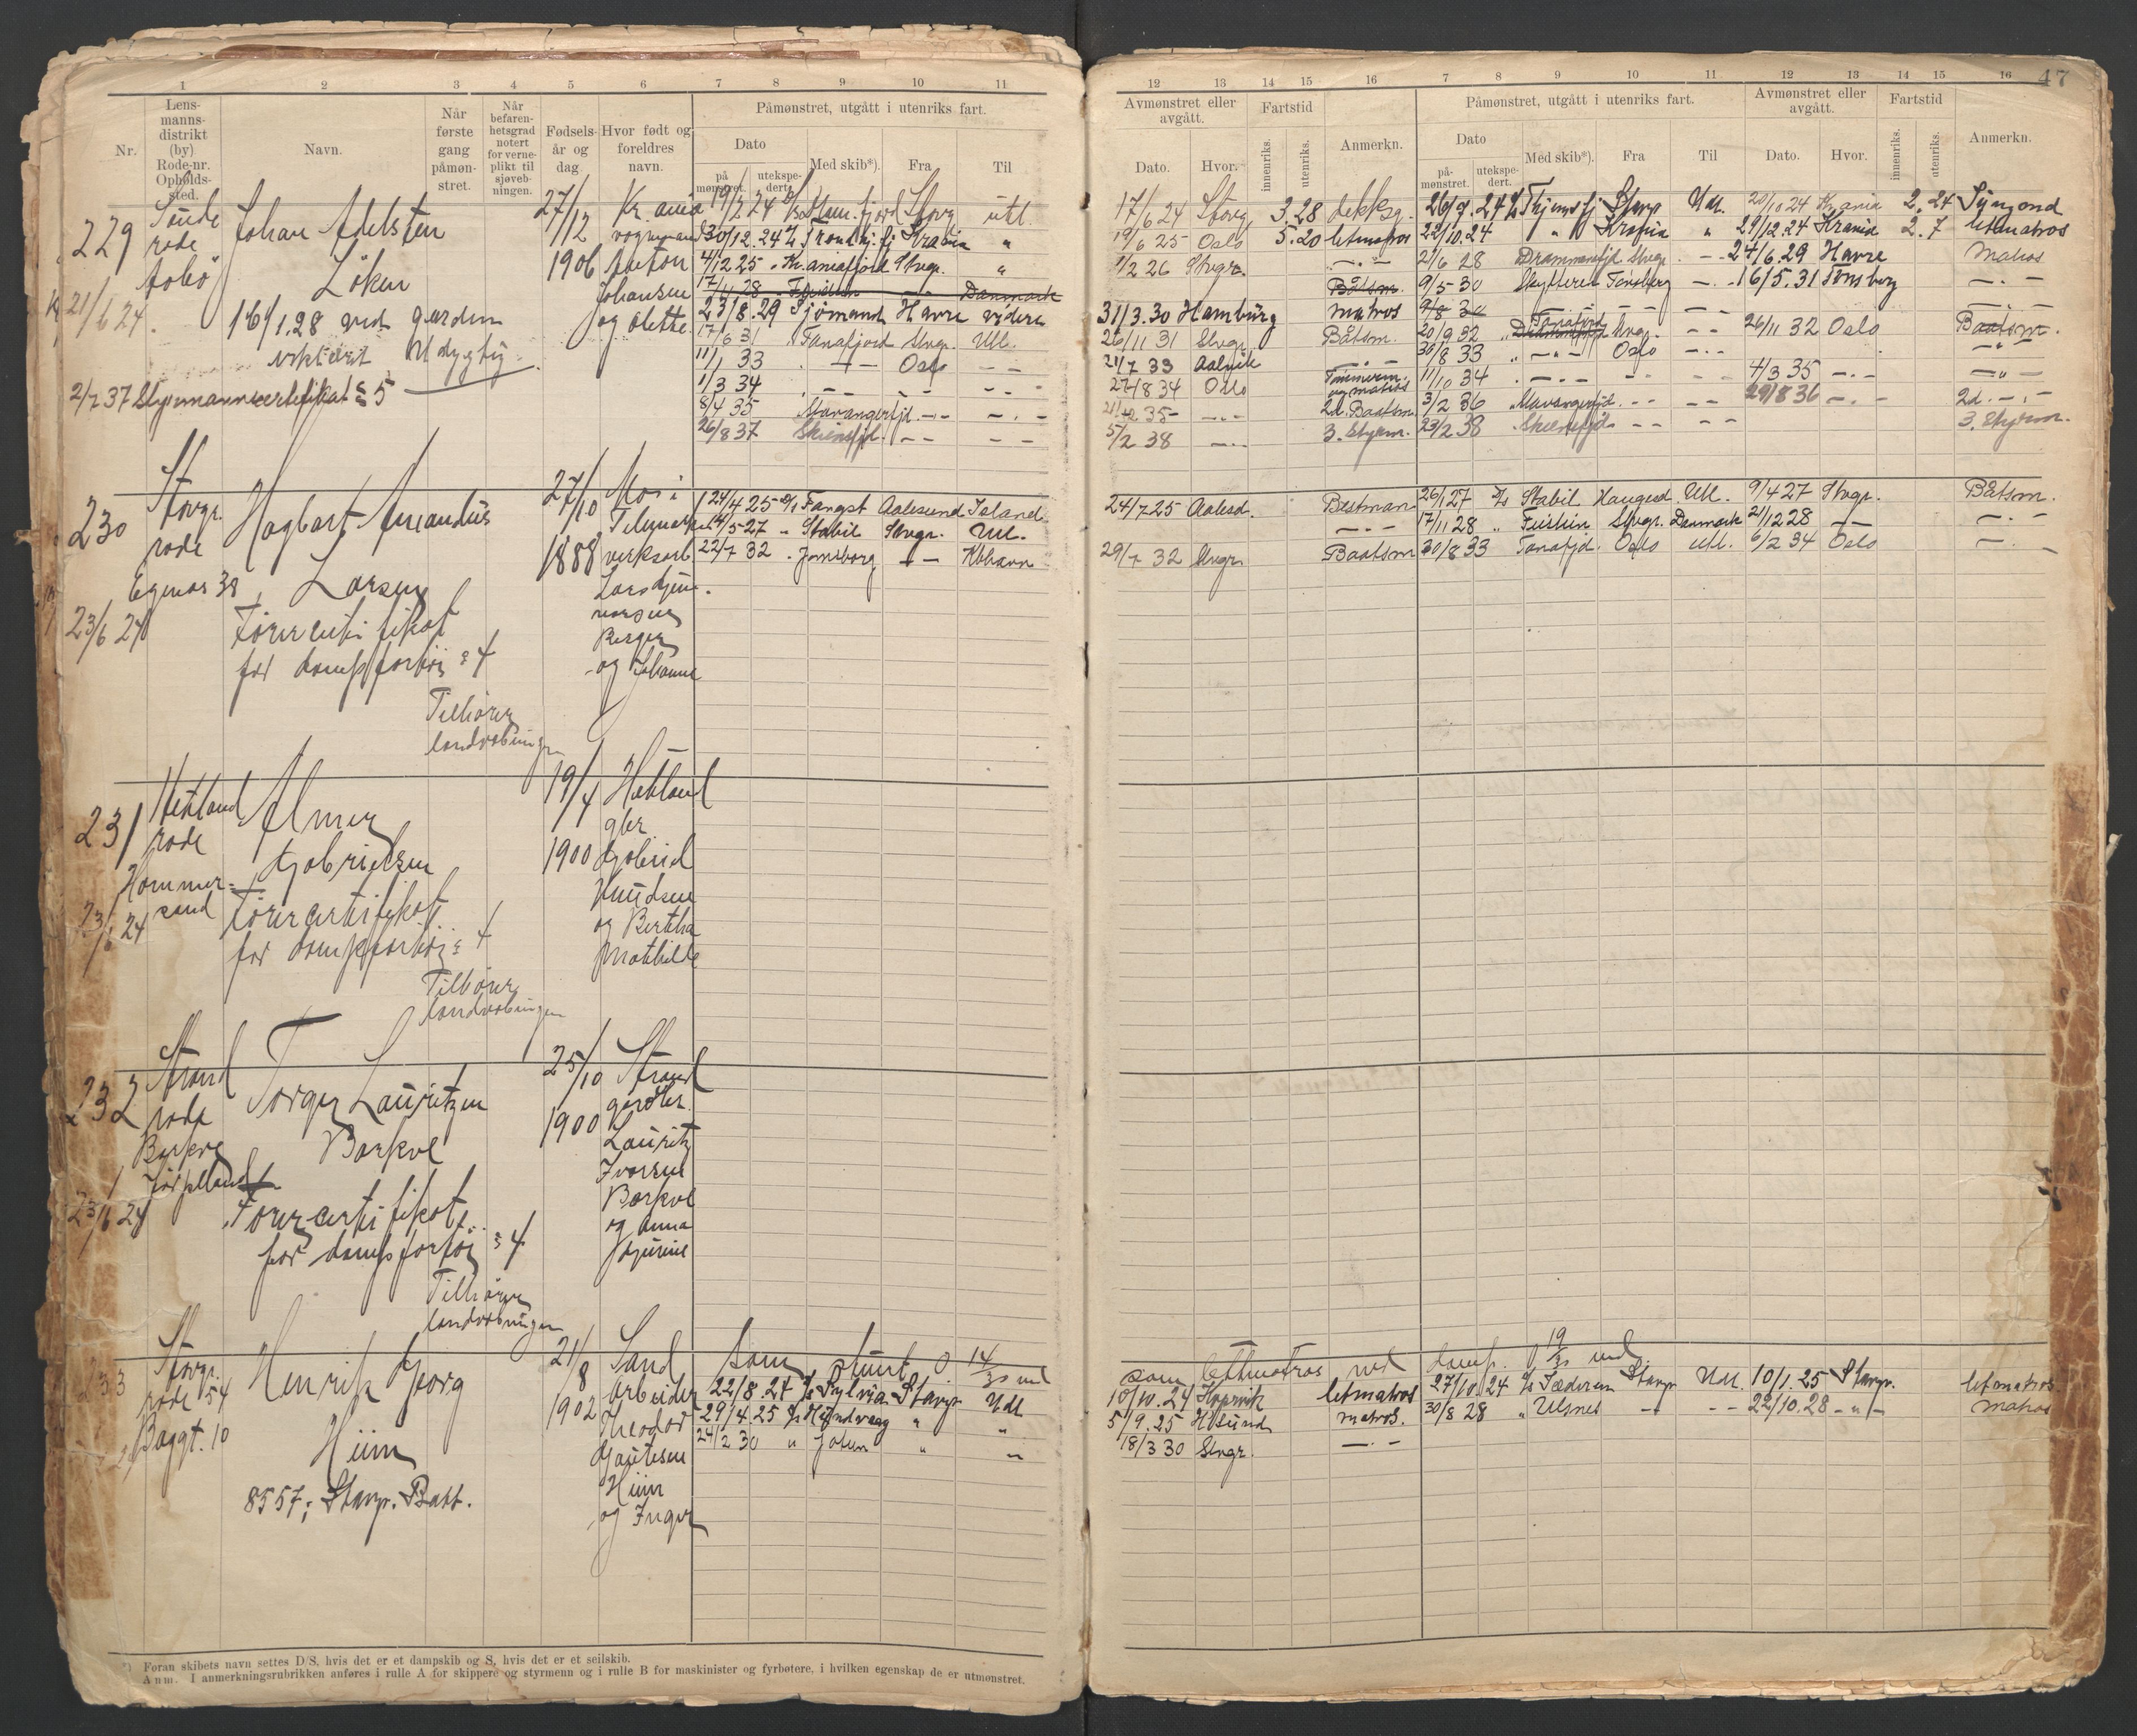 47
1 2 3 4 5 6 7 8 9 10 11
Nr.
Lens-
manns-
distrikt
(by)
Rode-nr.
Opholds-
sted.
Navn.
Når
første
gang
påmøn-
stret.
Når
befaren-
hetsgrad
notert
for verne-
plikt til
sjøveb-
ningen.
Fødsels-
år og
dag.
Hvor født og
foreldres
navn.
Påmønstret, utgått i utenriks fart.
Dato
på
mønstret.
utekspe-
dert.
Med skib*).
Fra
Til
229
rode
21/6 24
Johan Adelsten
Löken
16/1.28
2/7 37 Styrmannscertifikat 5
27/12
1906
Kr.ania
Anton
Johansen
og Olette
19/2 24 Stavg utl.
30/12.24 Trondhj.fj Krania "
4/12 25 Kr.aniafjord Stvgr. "
17/11 28 Feistein — Danmark
23/8.29 Sjömand Havre videre
17/6 31 Tanafjord Stvgr. Utl.
11/1 33 — Oslo — —
1/3 34 — — —
8/4 35 Stavangerfjd. — — —
26/8 37 Skiensfjd. — — — —
230
Stavgr.
rode
Egenes 38
23/6 24
Hagbart Amandus
Larsen
Förercertifikat
for dampfartöi 4
Tilhörer
landvebningen
27/10
1888
Berger
og Johanne
24/4 25 D/S Fangst Aalesund Island
14/5 27 - Stabil Stvgr. Utl.
22/7 32 . Jonsborg — Kbhavn
231
Hetland
rode
Hommer-
sand
23/6 24
Almer
Gabrielsen
Förercertifikat
for dampfartöi 4
Tilhörer
landvebningen
19/4
1900
Hetland
gbr
Gabriel
Knudsen
og Bertha
Mathilde
232
Strand
rode
Barkve
Jörpeland
23/6 24
Torger Lauritzen
Barkve
Förercertifikat
for dampfartöi 4
Tilhörer
landvebningen
25/10
1900
Strand
Lauritz
Ivarsen
Barkve
og Anna
Gurine
233
Stavgr.
rode 54
Baggt. 10
Henrik Georg
Hiim
8557; Stavgr. Batt.
21/8
1902
Sand
Arbeider
Theodor
Gautesen
Hiim
og Inger
som
22/8.24 D/S Sylvia Stavgr Utl
29/4.25 Hundvaag " "
24/2 30 " Jotun " "
*) Foran skibets navn settes D/S, hvis det er et dampskib og S, hvis det er et seilskib.
Anm. I anmerkningsrubrikken anføres i rulle A for skippere og styrmenn og i rulle B for maskinister og fyrbøtere, i hvilken egenskap de er utmønstret.
12 13 14 15 16 7 8 9 10 11 12 13 14 15 16
Avmønstret eller
avgått.
Fartstid
Dato.
Hvor.
innenriks.
utenriks.
Anmerkn.
Påmønstret, utgått i utenriks fart.
Dato
på-
mønstret.
utekspe-
dert.
Med skib*).
Fra
Til
Avmønstret eller
avgått.
Dato.
Hvor.
Fartstid
innenriks.
utenriks.
Anmerkn.
17/6 24 Stavg 3.28 dekksg. 26/9.24 Stavgr Utl. 20/10 24 Kr.ania 2.24
19/6 25 Oslo 5.20 letmatros 22/10.24 " Krania " 29/12.24 Krania 2.7 letmatros
1/2 26 Stvgr. — 21/6 28 Drammensfjd Stvgr. — 24/6.29 Havre Matros
Båtsm. 9/5 30 Skytteren Tönsberg — 16/5.31 Tönsberg —
31/3.30 Hamburg matros 9/8 30
26/11 31 Stvgr Båtsm. 20/9 32 Tanafjord Stvgr. — 26/11 32 Oslo Baatsm.
21/7 33 — 30/8 33 — Oslo —
27/8 34 Oslo Tömmerm. og matros 11/10 34 — — 4/3 35 — —
35 — 2d. Baatsm. 3/2 36 Stavangerfjd. — — 29/8 36 — 2d. —
5/2 38 — 3. Styrm. 23/2 38 Skiensfjd. — — 3. Styrm.
24/7 25 Aalesd. Bestman 26/1 27 D/S Stabil Haugesd. Utl. 9/4 27 Stvgr. Båtsm.
— 17/11 28 " Feistein Stvgr. Danmark 21/12 28 — —
29/7 32 Stvgr Baatsm 30/8 33 Tanafjd. Oslo Utl. 6/2 34 Oslo —
som letmatros
10/10.24 Hopsvik letmatros 27/10 24 D/S Jæderen Stavgr Utl. 10/1.25 Stavgr. letmatros
5/9.25 matros. 30/8 28 " Ulsnes — — 22/10.28 — matros
18/3 30 Stvgr. —